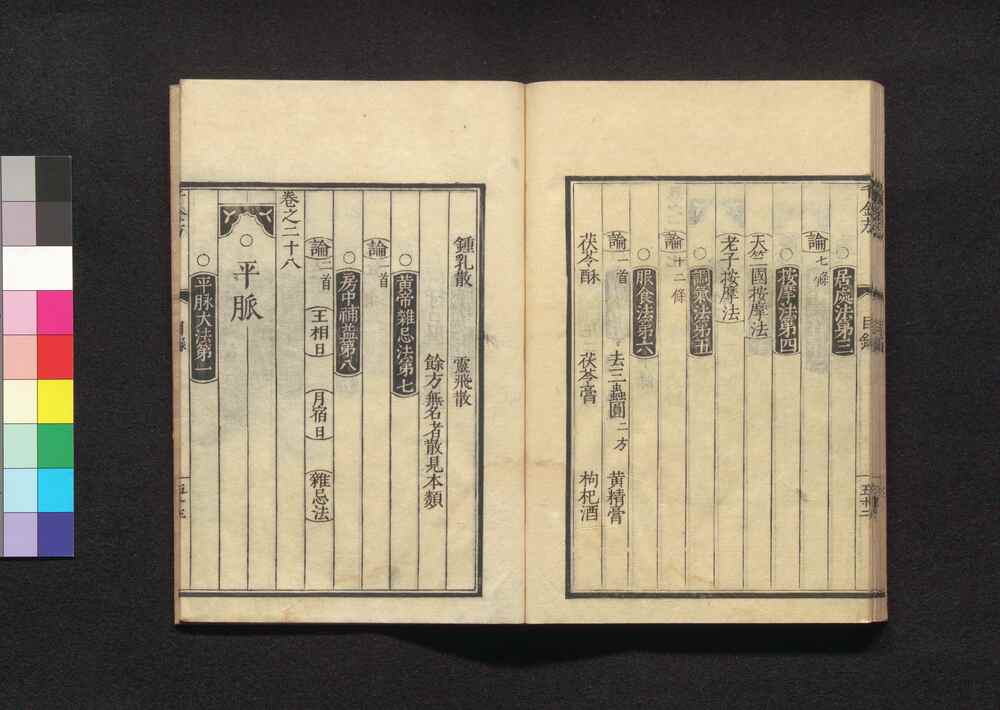 ○居處法第三
論七條
○按摩法第四
天竺國按摩法
老子按摩法
○調氣法第五
論十二條
○服食法第六
論一首 去三蟲圓二方 黄精膏
茯苓酥 茯苓膏 枸杞酒
鍾乳散 靈飛散
餘方無名者散見本類
○黄帝雜忌法第七
論一首
○房中補益第八
論一首 王相日 月宿日 雜忌法
卷之二十八
○平脈
○平脉大法第一
目錄
五十二